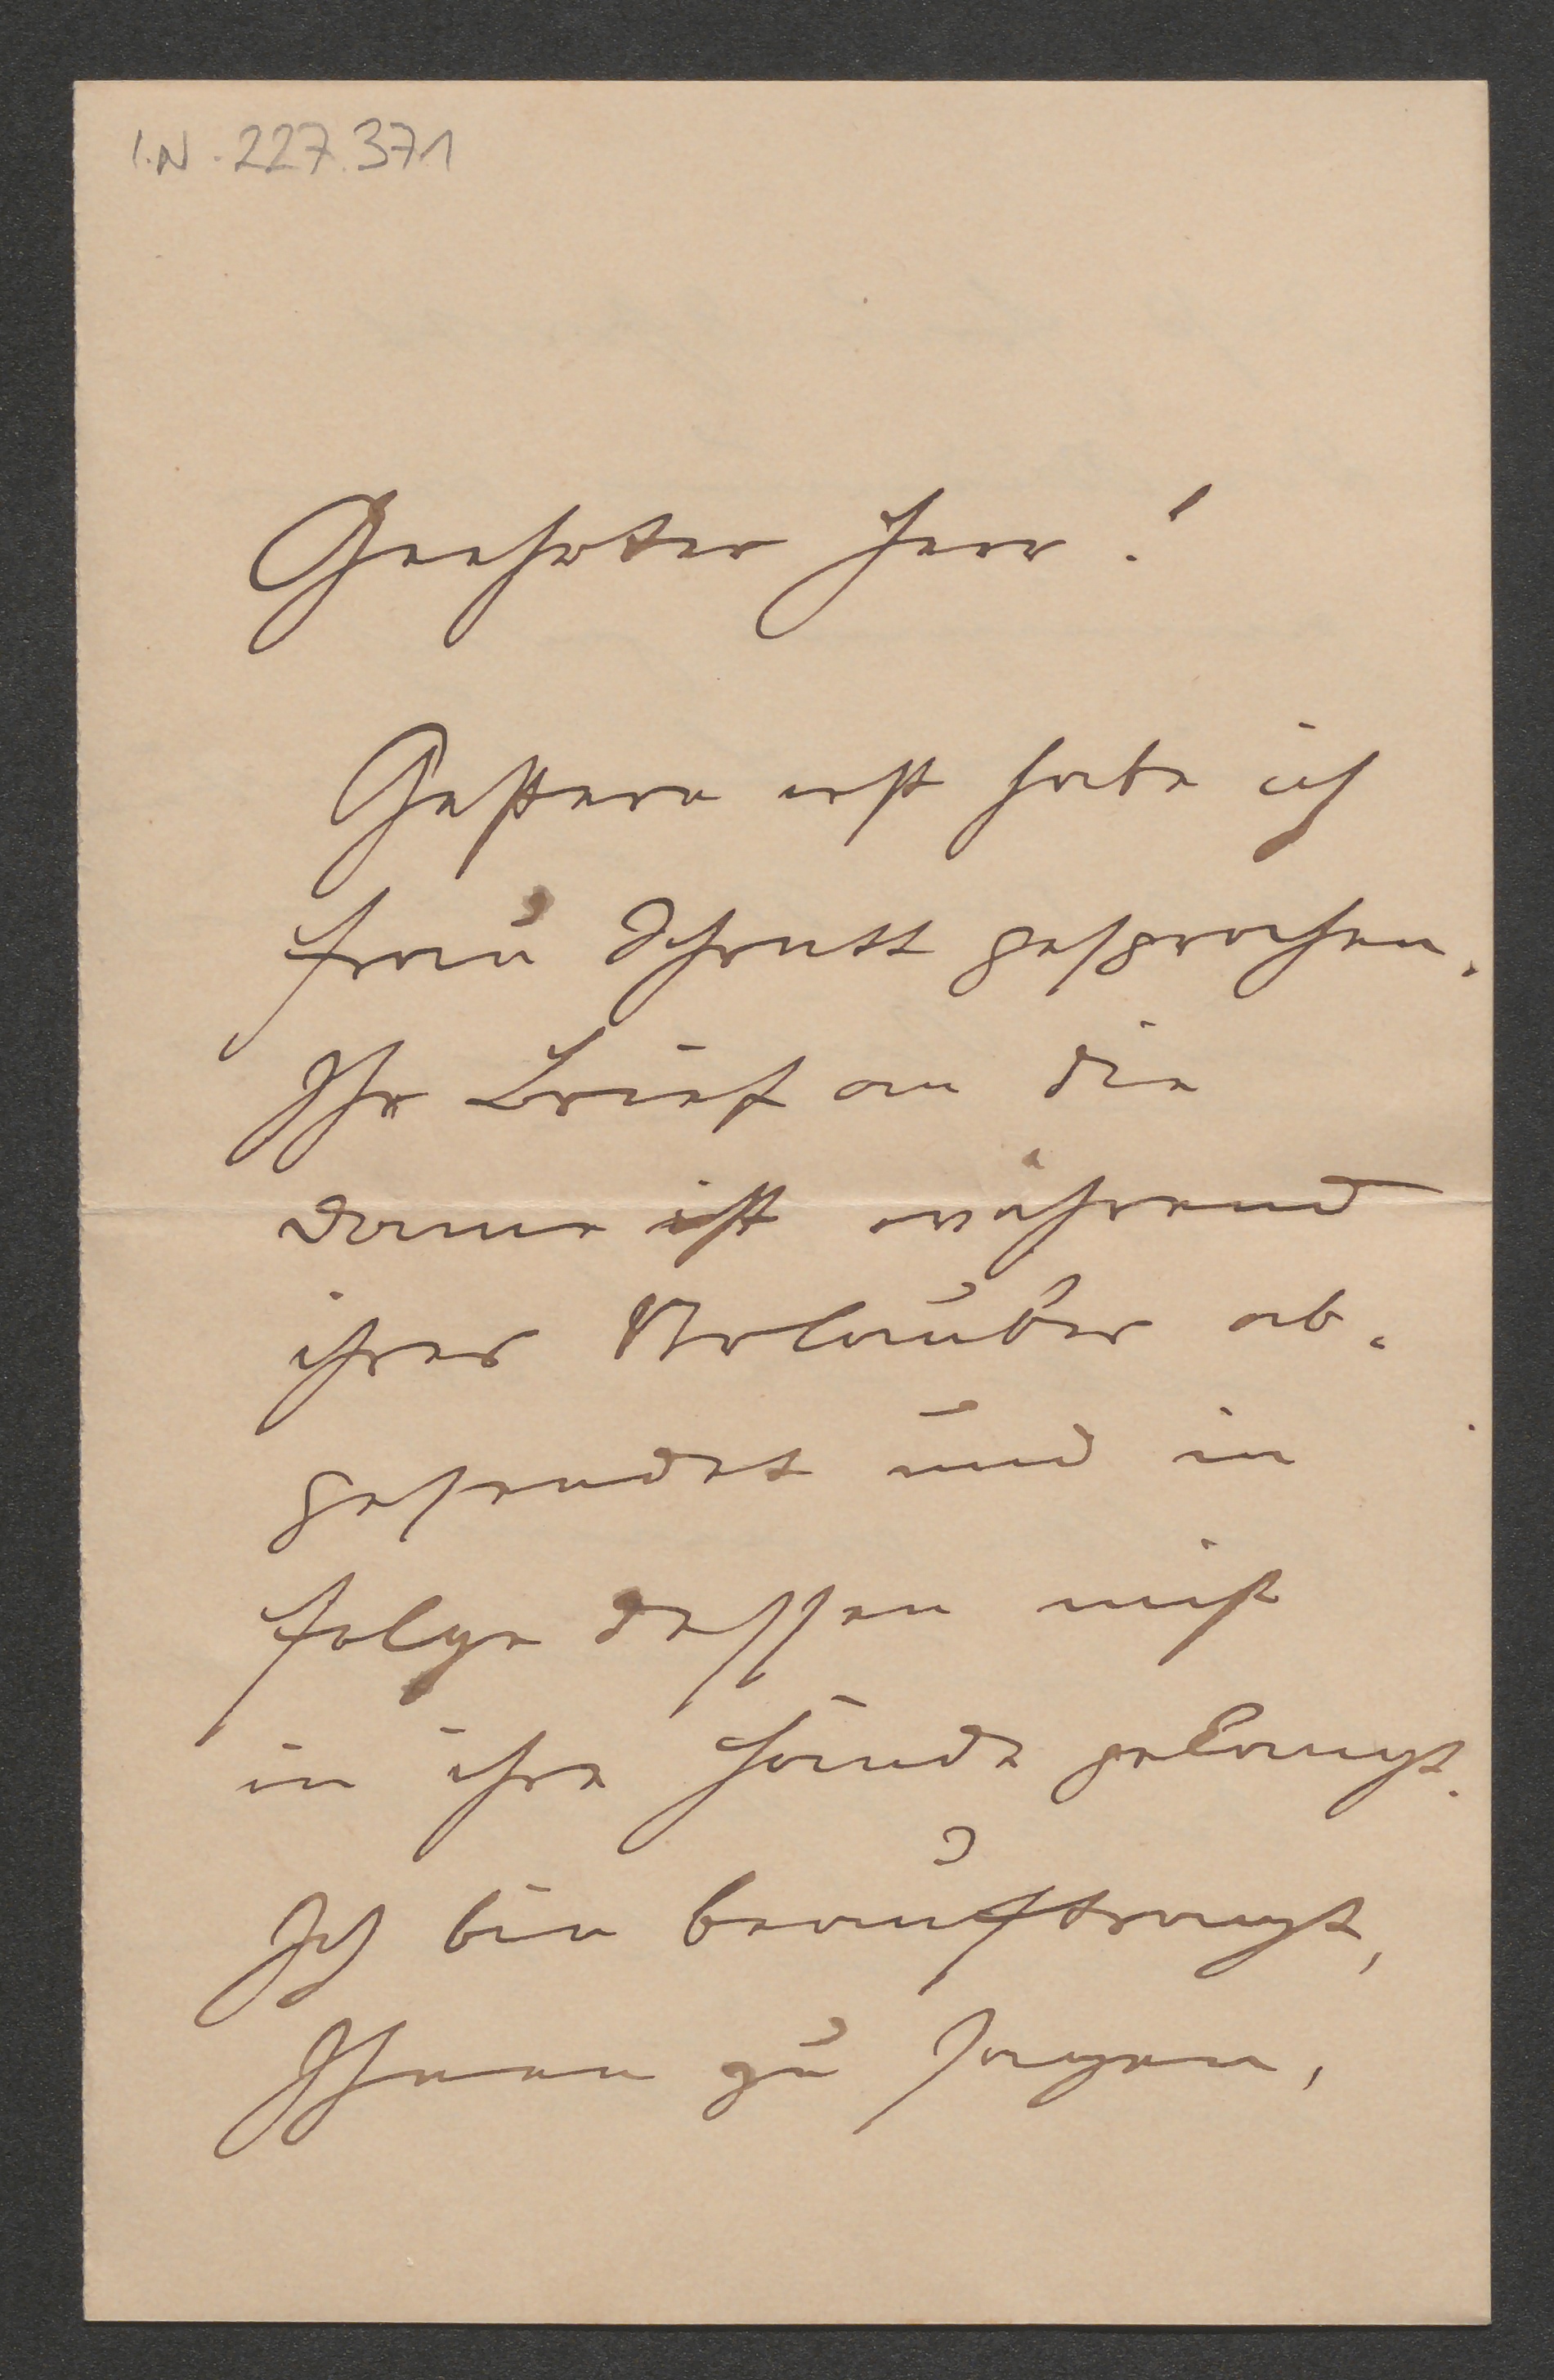 I.N. 227.371
Geehrter Herr!
Gestern erst habe ich
Frau Schratt gesprochen.
Ihr Brief an die
Dame ist während
ihres Urlaubes ab-
gesendet und in
Folge dessen nicht
in ihre Hände gelangt.
Ich bin beauftragt,
Ihnen zu sagen,